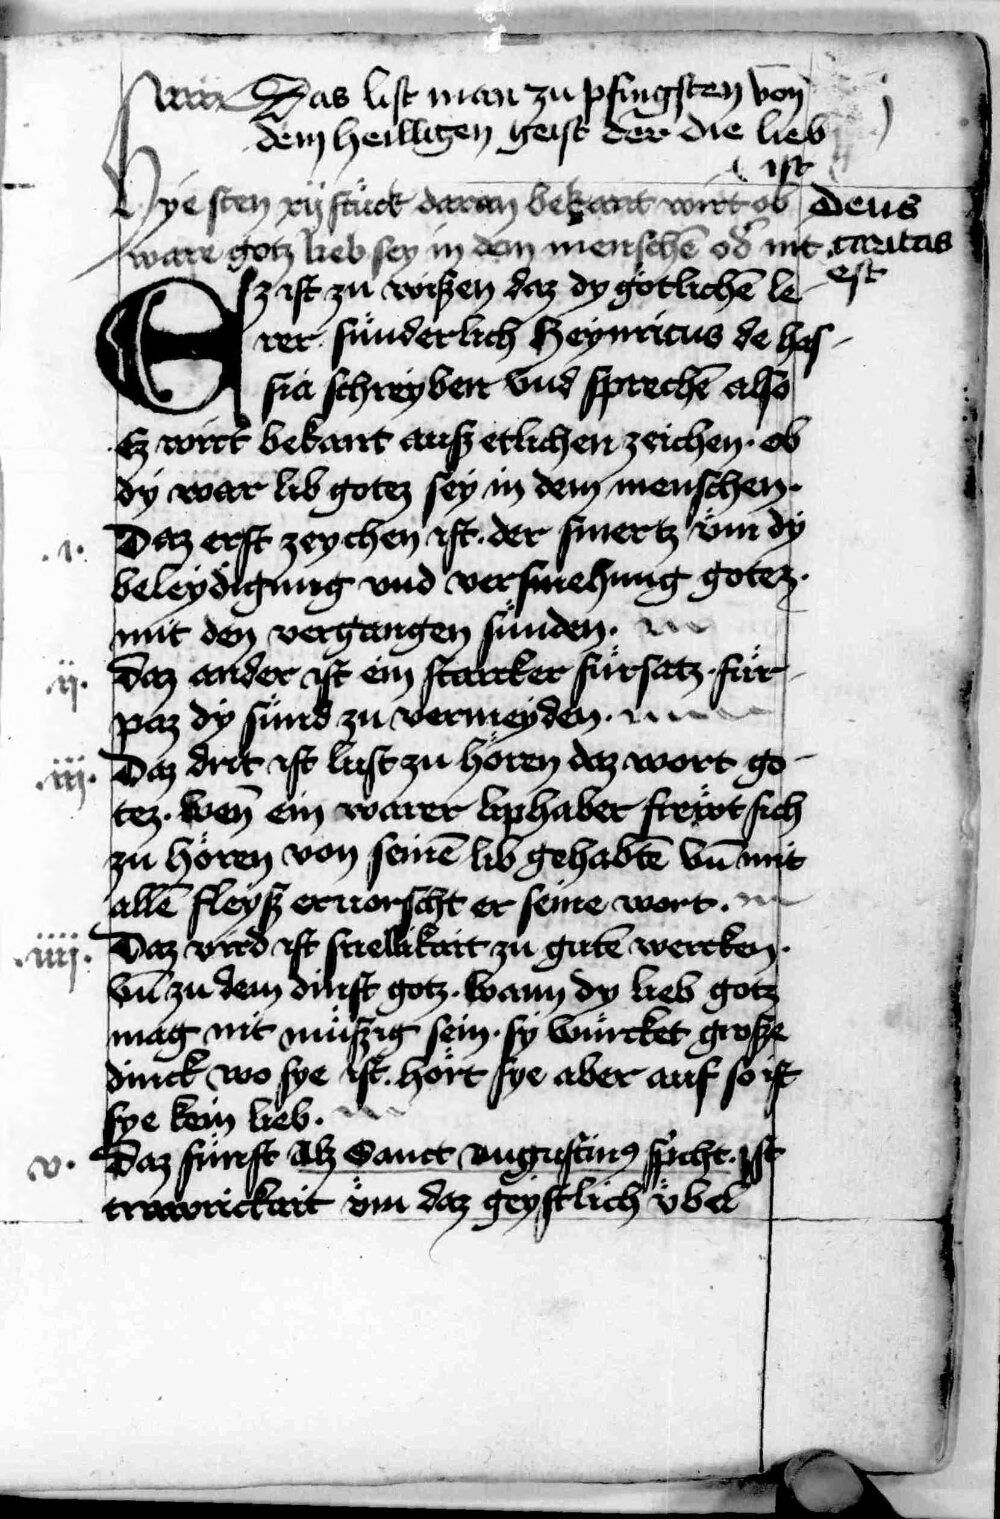 Das list man zu pfingsten von
dem heilligen geist der die lieb
ist
Hye sten xij stuck daran bekant wirt ob
ware gotz lieb sey in dem menschē od̄ nit
deus
caritas
est
Esz ist zu wißen daz dy götlichē le
rer sünderlich Heynricus de has
sia schreyben vnd sprechē also
Ez wirt bekant auß etlichen zeichen · ob
dy war lib gotez sey in dem menschen ·
.i. Daz erst zeychen ist · der smertz vm dy
beleydigung vnd versmehung gotez ·
mit den vergangen sünden ·
.ij. Daz ander ist ein starcker fürsatz · für
paz dy sünd zu vermeyden ·
.iij. Daz drit ist lust zu hören daz wort go
tez · wen̄ ein warer liphaber frewt sich
zu hören von seinē lib gehabtē vn̄ mit
allē fleyß ervorscht er seine wort ·
.iiij. Daz vird ist snellikait zu gutē wercken ·
vn̄ zu dem dinst gotz · wann dy lieb gotz
mag nit müßig sein · sy würcket große
dinck wo sye ist · hört sye aber auf so ist
sye kein lieb ·
v. Daz fünfst Alz Sanct augustinꝰ spicht · Ist
trawrickait vm daz geystlich übel